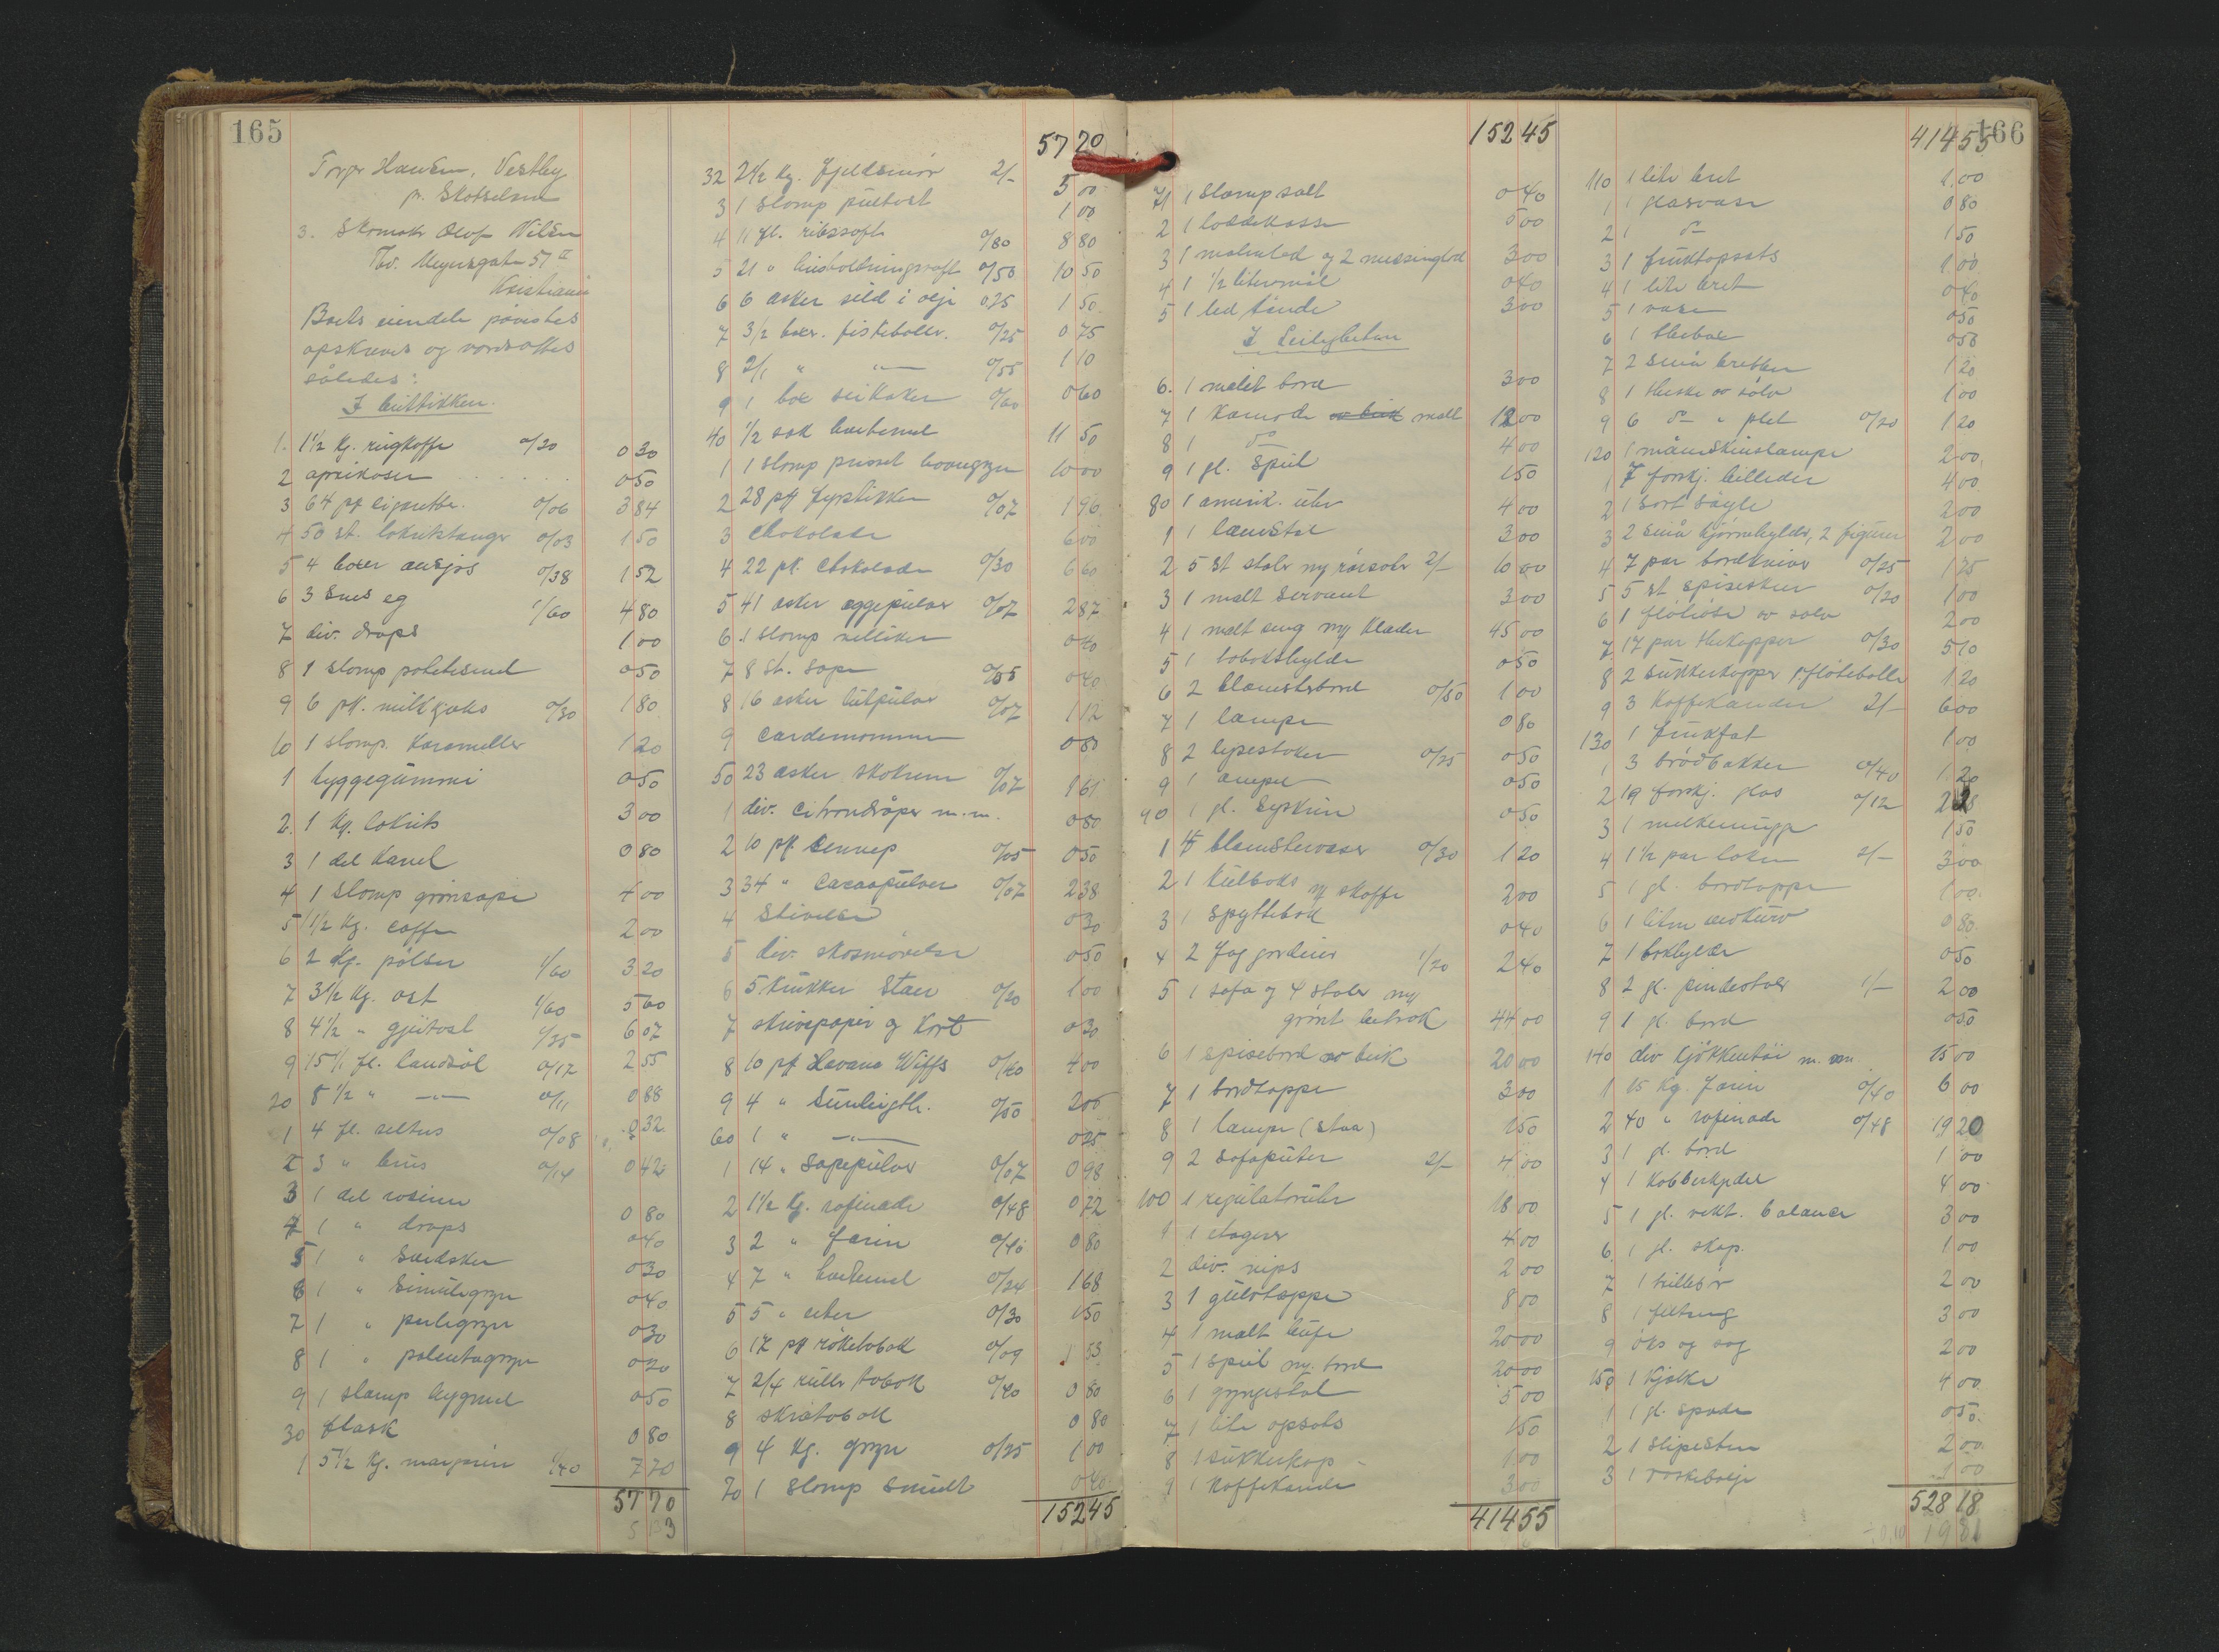 165
Hansen, Vestby
p. Skotselven
3. Skomaker Olof Nilsen
Th. Meyersgate 57 II
Kristiania
Boets eiendele påvistes
opskreves og verdsattes
således:
I butikken.
1. 1½ kg. rugkaffe 0/20 0 30
2 aprikoser 0 50
3 64 pk cigaretter. 0/06 3 84
4 50 st. lakritstanger 0/03 1 50
5 4 boxer ansjos 0/38 1 52
6 3 snes eg 1/60 4 80
7 div. drops 1 00
8 1 slomp potetesmel 0 50
9 6 pk. 0/30 1 80
10 1 slomp. karameller 1 20
1 tyggegummi 0 50
2. 1 kg. lakrits 3 00
3 1 del kanel 0 80
4 1 slomp grønsape 4 00
5 1½ kg. caffe 2 00
6 2 kg. pølser 1/60 3 20
7 3½ kg. ost 1/60 5 60
8 4½ " gjeitost 1/35 6 07
9 15 1/1 fl. landsøl 0/17 2 55
20 8 ½ " —"— 0/11 0 88
1 4 fl. selters 0/08 0 32
2 3 " brus 0/14 0 42
3 1 del rosiner 0 80
4 1 " drops 0 40
5 1 " 0 30
6 1 " semulegryn 0 40
7 1 " perlegryn 0 30
8 1 " polentagryn 0 20
9 1 slomp bygmel 0 50
30 flask 0 80
1 5½ kg. margarin 1/40 7 70
57 70
57 70
32 2½ kg. fjeldsmør 2/- 5 00
3 1 slomp pultost 1 00
4 11 fl. ribssaft 0/80 8 80
5 21 " husholdningssaft 0/50 10 50
6 6 æsker sild i olje 0 25 1 50
7 3/2 boxer. fiskeboller. 0/25 0 75
8 2/1 " —"— 0/55 1 10
9 1 box seikaker 0/60 0 60
40 ½ sæk havremel 11 50
1 1 slomp presset havregryn 10 00
2 28 pk fyrstikker 0/07 1 96
3 Chokolade 6 00
4 22 pk. Chokolade 0/30 6 60
5 41 æsker eggepulver 0/07 2 87
6 1 slomp nelliker 0 40
7 8 st. sape 0/05 0 40
8 16 æsker lutpulver 0/07 1 12
9 Cardemomme 0 50
50 23 æsker skokrem 0/07 1 61
1 div. Citrondråper m.m. 0 80
2 10 pk sennep 0/05 0 50
3 34 " Cacaopulver 0/07 2 38
4 Stivelse 0 30
5 div. skosmørelse 0 50
6 5 krukker Stær 0/20 1 00
7 skrivepapir og kort 0 30
8 10 pk Havana Wiffs 0/40 4 00
9 4 " Sunligth. 0/50 2 00
60 1 " —"— 0 25
1 14 " Sapepulver 0/07 0 98
2 1½ kg. rafinade 0/48 0 72
3 2 " farin 0/40 0 80
4 7 " havremel 0/24 1 68
5 5 " erter 0/30 1 50
6 17 pk røketobak 0/09 1 53
7 2/4 ruller tobak 0/40 0 80
8 skråtobak 0 80
9 4 kg. gryn 0/25 1 00
70 1 slomp smult 0 40
152 45
152 45
71 1 slomp salt 0 40
2 1 loddekasse 5 00
3 1 malmlod og 2 messinglod 3 00
4 1 ½ litersmål 0 40
5 1 bed tønde 3 00
I Leiligheten
6. 1 malet bord 3 00
7 1 Komode malt 12 00
8 1 do 4 00
9 1 gl. speil 1 50
80 1 amerik. uhr 4 00
1 1 lænestol 3 00
2 5 st stoler m/ rørsæter 2/- 10 00
3 1 malt servant 3 00
4 1 malt seng m/ klæder 45 00
5 1 tobakshylde 0 50
6 2 blomsterbord 0/50 1 00
7 1 lampe 0 80
8 2 lysestaker 0/25 0 50
9 1 ampel 0 50
90 1 gl. syskrin 0 50
1 4 blomstervaser 0/30 1 20
2 1 kulboks m/ skuffe 2 00
3 1 spyttebak 0 40
4 2 fag gardiner 1/20 2 40
5 1 sofa og 4 stoler m/
grønt betræk 44 00
6 1 spisebord av birk 20 00
7 1 bordteppe 3 00
8 1 lampe (staa) 1 50
9 2 sofaputer 2/- 4 00
100 1 regulatoruhr 18 00
1 1 etagere 4 00
2 div. nips 2 00
3 1 gulvteppe 8 00
4 1 malt bufe 20 00
5 1 speil m/ bord 20 00
6 1 gyngestol 5 00
7 1 lite opsats 1 50
8 1 sukkerkop 1 00
9 1 kaffekande 3 00
414 55
166
414 55
110 1 lite bret 1.00
1 1 glasvase 0 80
2 1 do 1 50
3 1 fruktopsats 1.00
4 1 lite bret 0 40
5 1 vase 0 50
6 1 0 50
7 2 små bretter 1 20
8 1 theske av sølv 1 00
9 6 do " plet 0/20 1 20
120 1 måneskinslampe 2 00
1 7 forskj. billeder 4 00
2 1 sort søyle 2 00
3 2 små hjørnehylder, 2 figurer 2 00
4 7 par bordkniver 0/25 1 75
5 5 st spiseskeer 0/20 1 00
6 1 fløteøse av sølv 2 00
7 17 par thekopper 0/30 5 10
8 2 sukkerkopper 1 fløtebolle 1 20
9 3 kaffekander 2/- 6 00
130 1 fruktfat 1 00
1 3 brødbakker 0/40 1.20
2 19 forskj. glas 0/12 2 28
3 1 melkemugge 1 50
4 1½ par laken 2/- 3 00
5 1 gl. bordteppe 1 00
6 1 liten vedkurv 0 80
7 1 bokhylde 0 50
8 2 gl. pindestoler 1/- 2 00
9 1 gl. bord 0 50
140 div kjøkkentøi m. m. 15 00
1 15 kg. farin 0/40 6 00
2 40 " rafinade 0/48 19 20
3 1 gl. bord 1 00
4 1 kobberkjedel 4 00
5 1 gl. vekt. balance 3 00
6. 1 gl. skap. 1 00
7 1 trillebør 2 00
8 1 feltseng 3 00
9 øks og sag 2 00
150 1 kjelke 4 00
1 1 gl. spade 0 50
2 1 slipesten 2 00
3 1 vaskebalje 1 00
528 18